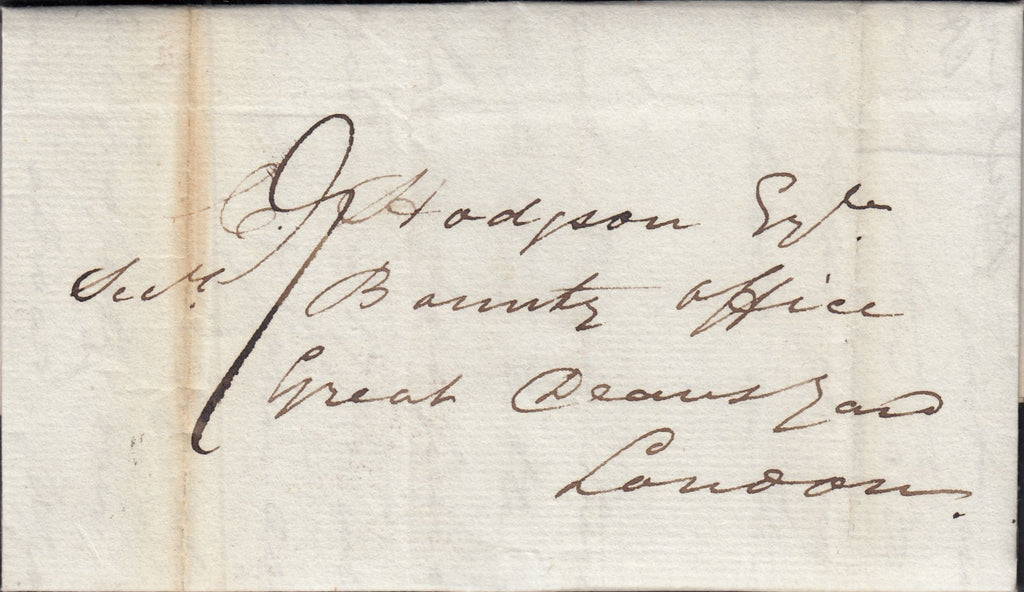 C. Hodgson Esqre.
Secy. Bounty Office
Great Deans Yard
London.